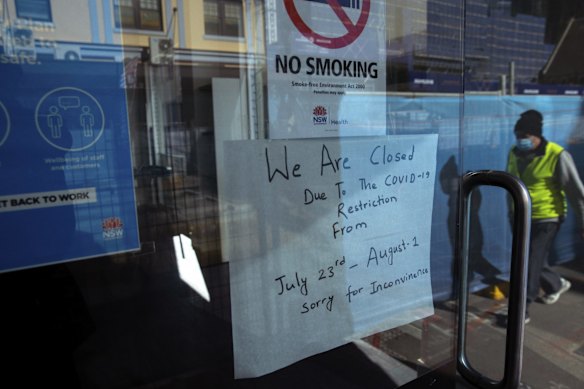 safe.
GET BACK TO WORK
NSW
NO SMOKING
Smoke-free Environment Act 2000
Penalties may apply
NSW
Health
We Are Closed
Due To The COVID-19
Restriction
From
July 23rd - August-1
Sorry for Inconvinence